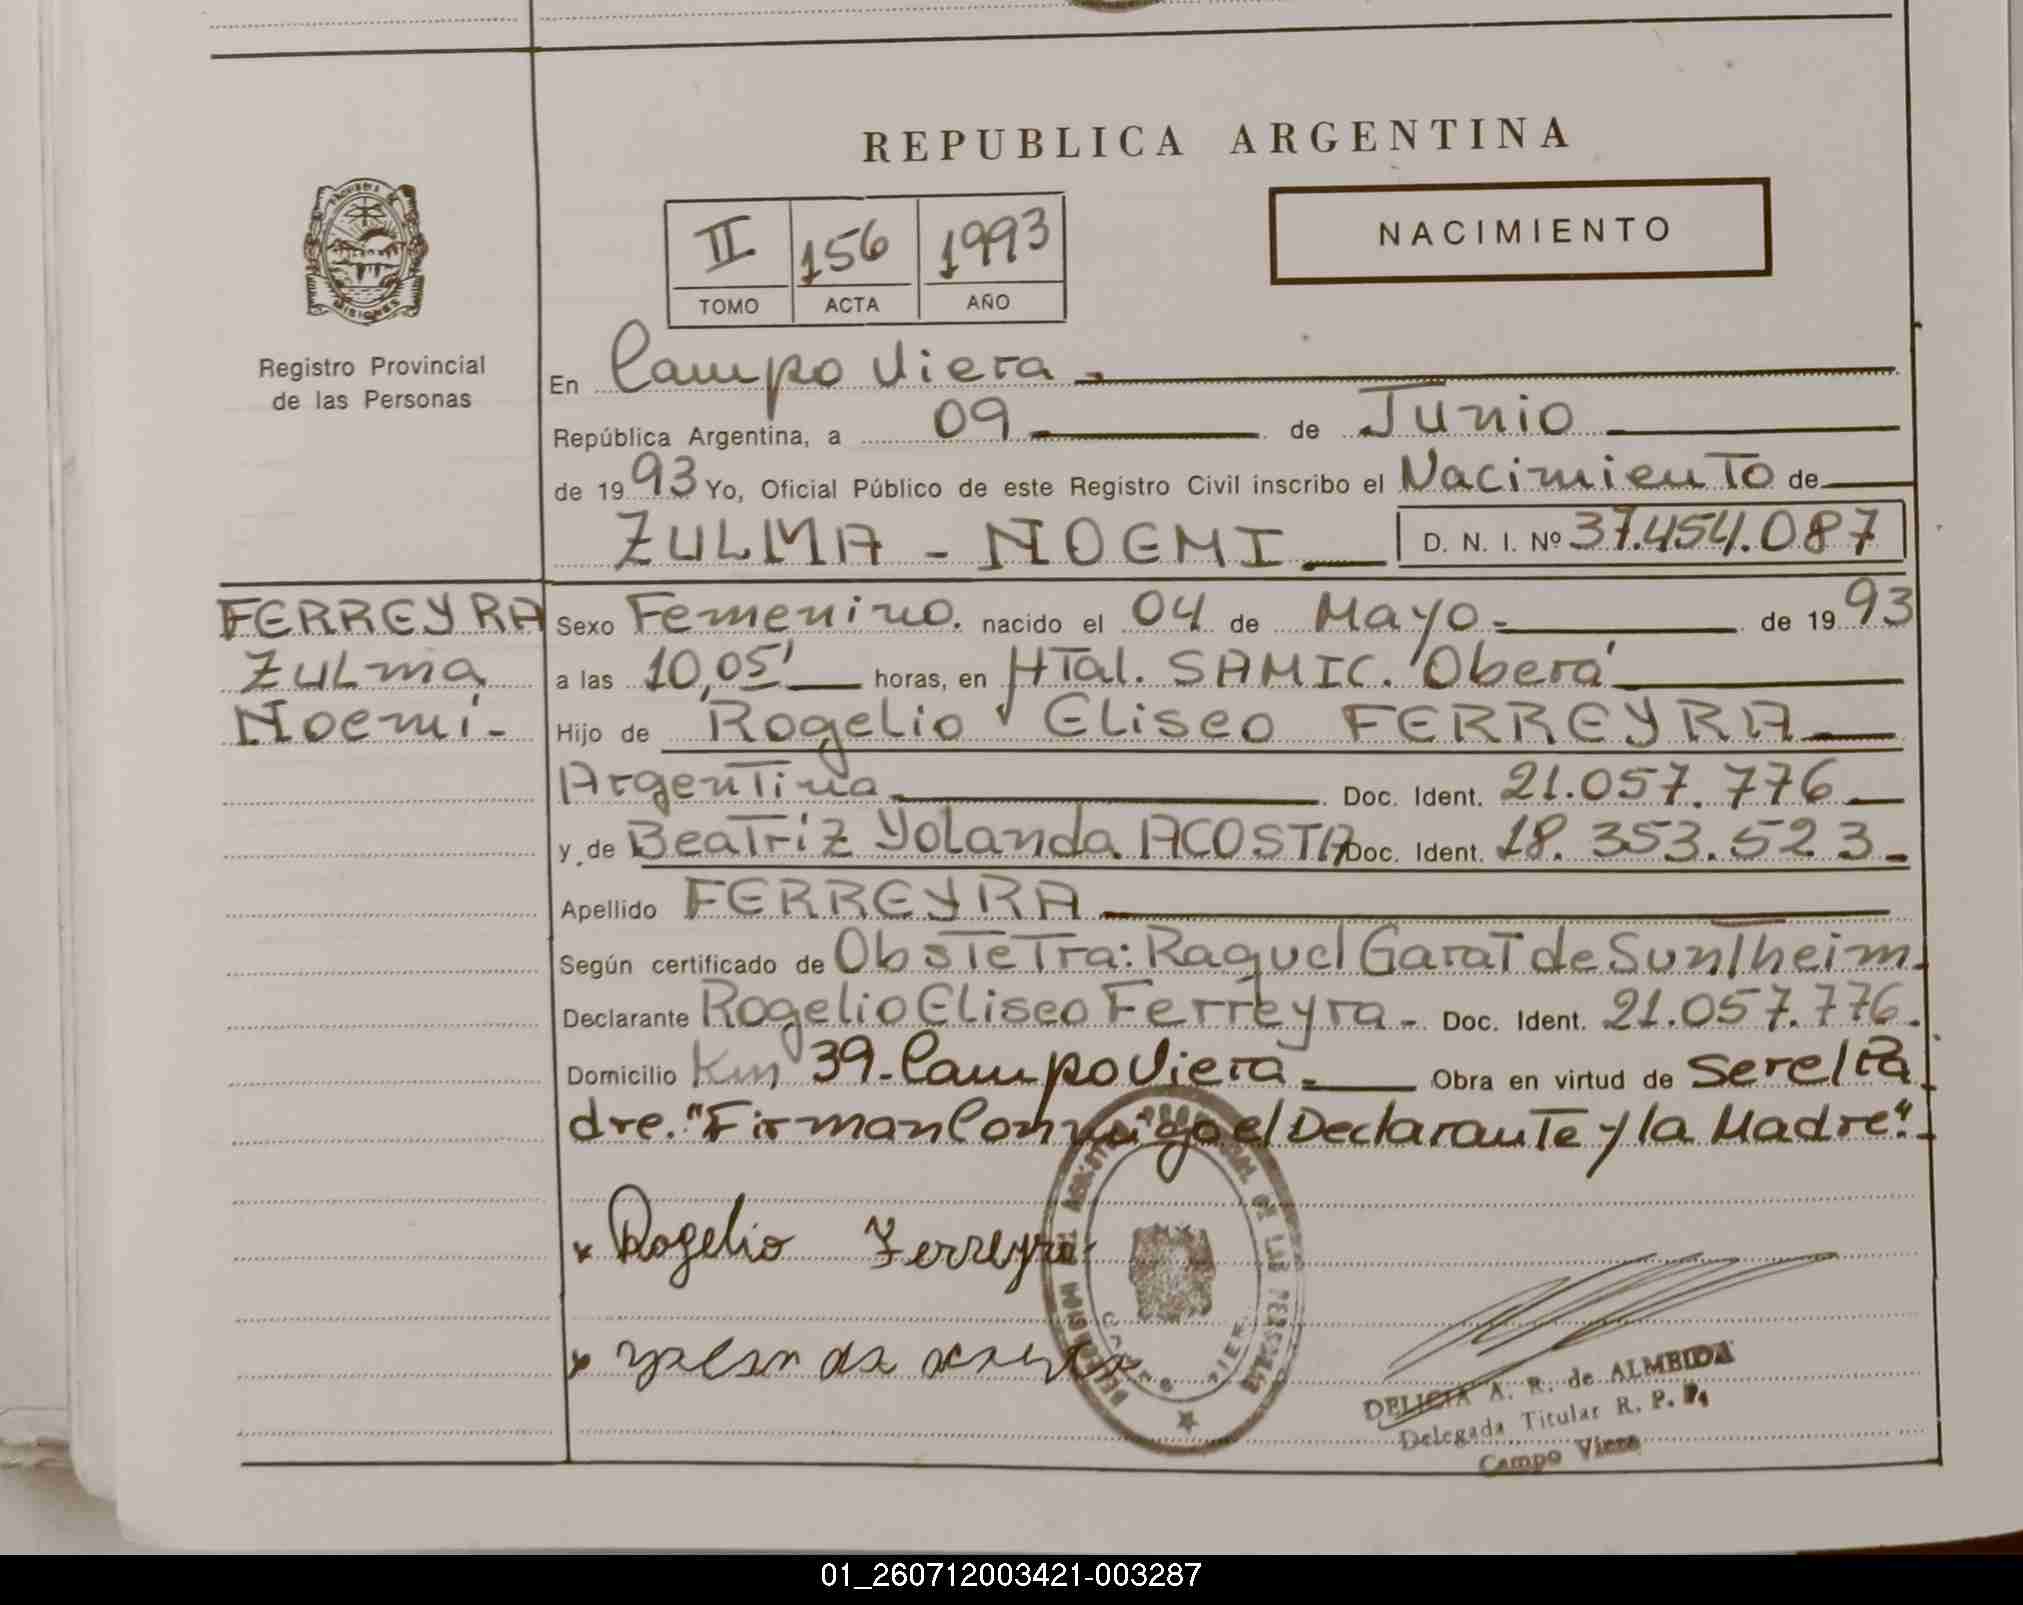 REPUBLICA ARGENTINA
NACIMIENTO
II 156 1993
TOMO ACTA AÑO
MISIONES
Registro Provincial
de las Personas
En Campo Viera.
República Argentina, a 09 de Junio
de 1993 Yo, Oficial Público de este Registro Civil inscribo el Nacimiento de
ZULMA - NOEMI D. N. I. Nº 37.454.087
FERREYRA
Zulma
Noemi.-
Sexo Femenino. nacido el 04 de Mayo.- de 1993
a las 10,05' horas, en HTal. SAMIC. Oberá
Hijo de Rogelio Eliseo FERREYRA
Argentina. Doc. Ident. 21.057.776
y de Beatriz Yolanda ACOSTA Doc. Ident. 18.353.523.-
Apellido FERREYRA
Según certificado de Obstetra: Raquel Garat de Suntheim.
Declarante Rogelio Eliseo Ferreyra.- Doc. Ident. 21.057.776.
Domicilio Km 39.- Campo Viera. Obra en virtud de ser el Pa
dre. "Firman Conmigo el Declarante y la Madre".-
x Rogelio Ferreyra
x
DELICIA A. R. de ALMEIDA
Delegada Titular R. P. P.
Campo Viera
01_260712003421-003287